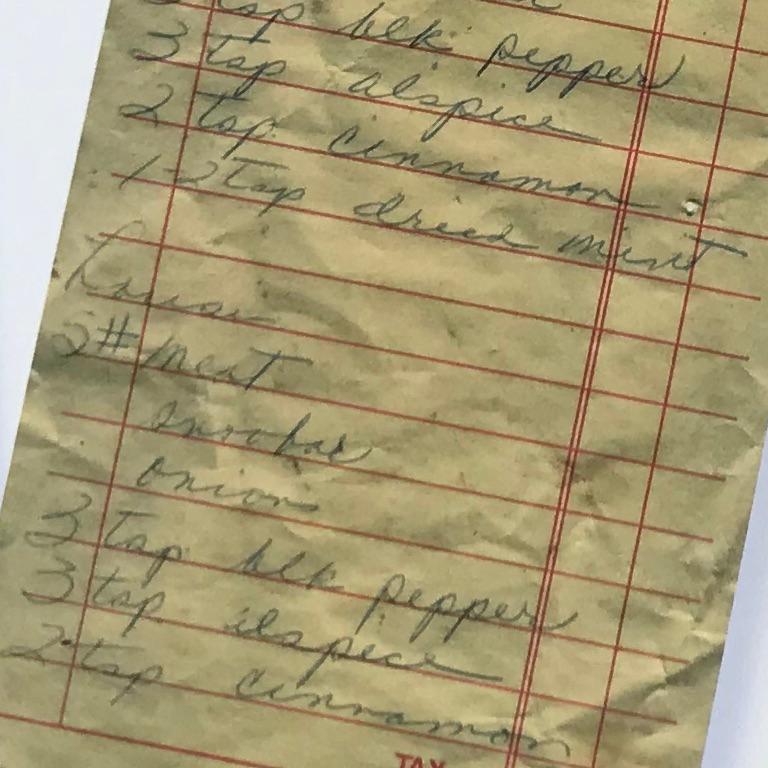 tsp blk pepper
3 tsp alspice
2 tsp cinnamon
1-2 tsp dried mint
2# meat
onions
3 tsp blk pepper
3 tsp alspice
2 tsp cinnamon
TAX